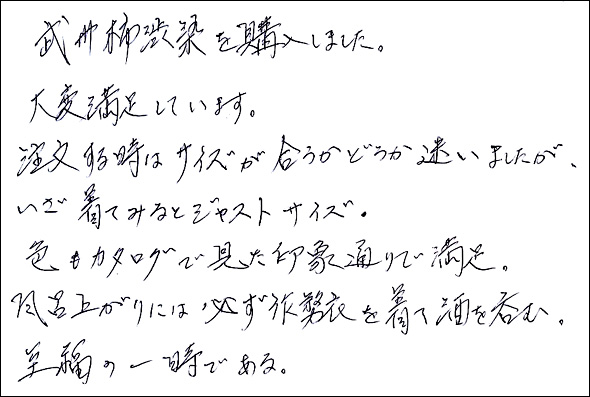 武州柿渋染を購入しました。
大変満足しています。
注文する時はサイズが合うかどうか迷いましたが、
いざ着てみるとジャストサイズ。
色もカタログで見た印象通りで満足。
風呂上がりには必ず作務衣を着て酒を呑む。
至福の一時である。